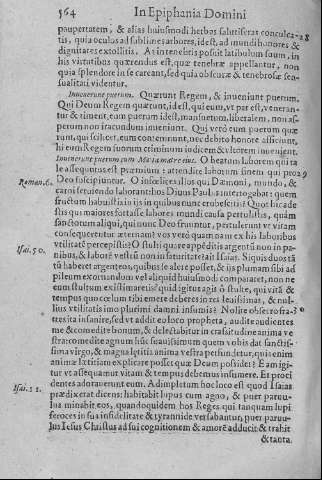 564 In Epiphania Domini
paupertatem, & alias huiusmodi herbas salutiferas conculca-
tis, quia oculos ad sublimes arbores, idest, ad mundi honores &
dignitates extollitis. At in tenebris posuit latibulum suum, in
his virtutibus quærendus est, quæ tenebræ appellantur, non
quia splendore in se careant, sed quia obscuræ & tenebrosæ sen-
sualitati videntur.
Inuenerunt puerum. Quærunt Regem, & inueniunt puerum.
Qui Deum Regem quærunt, idest, qui eum, vt par est, veneran-
tur & timent, eum puerum idest, mansuetum, liberalem, non as-
perum non iracundum inuenient. Qui verò eum puerum quæ
runt, qui scilicet, eum contemnunt, nec debito honore afficiunt,
hi eum Regem suorum criminum iudicem & vltorem inuenient.
Inuenerunt puerum cum Maria matre eius. O beatum laborem qui ta
le assequutus est præmium: attendite laborum finem qui pro
Roman. 6. Deo suscipiuntur. O infœlices illos qui Dæmoni, mundo, &
carni seruiendo laborant: hos Diuus Paul. interrogabat: quem
fructum habuistis in ijs in quibus nunc erubescitis? Quot hic ade
stis qui maiores fortasse labores mundi causa pertulistis, quàm
sanctorum aliqui, qui nunc Deo fruuntur, pertulerunt vt vitam
consequerentur æternam? vos verò quam nam ex his laboribus
vtilitatẽ percepistis? O stulti quare appẽditis argentũ non in pa-
Isai. 50. nibus, & laborẽ vestrũ non in saturitate? ait Isaias. Si quis duos tã
tũ haberet argenteos, quibus se alere posset, & ijs plumam sibi ad
pileum exornandum vel aliquid huiusmodi compararet, non ne
eum stultum existimaretis? quid igitur agit ô stulte, qui vitã &
tempus quo cœlum tibi emere deberes in res leuissimas, & nul-
lius vtilitatis imo plurimi damni insumis? Nolite obsecro fra-
tres ita insanire, sed vt addit eo loco propheta, audite audientes
me & comedite bonum, & delectabitur in crassitudine anima ve
stra: comedite agnum hũc suauissimum quem vobis dat sanctis-
sima virgo, & magna lætitia anima vestra perfundetur, qui enim
animæ lætitiam explicare posset quæ Deum possidet? Eam igi-
tur vt assequamur vitam & tempus debemus insumere. Et proci
dentes adorauerunt eum. Adimpletum hoc loco est quod Isaias
Isai. 11. prædixerat dicens: habitabit lupus cum agno, & puer paruu-
lus minabit eos, quandoquidem hos Reges qui tanquam lupi
feroces in sua infidelitate & tyrannide versabantur, puer paruu-
lus Iesus Christus ad sui cognitionem & amorẽ adducit & trahit
& tanta